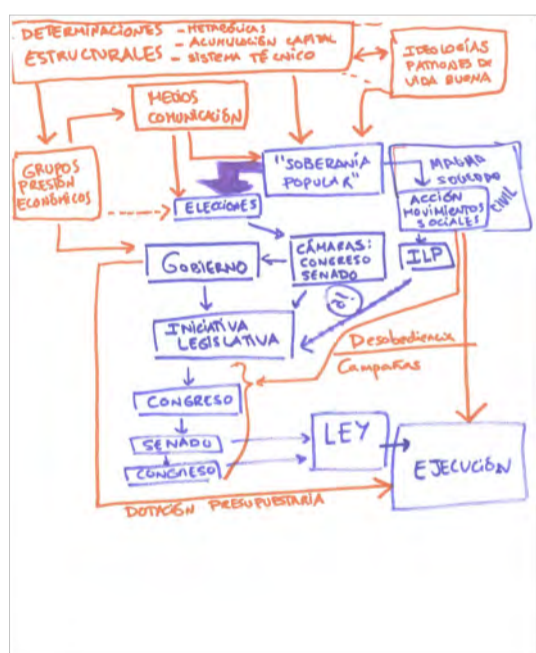 DETERMINACIONES
ESTRUCTURALES
- METABÓLICAS
- ACUMULACIÓN CAPITAL
- SISTEMA TÉCNICO
IDEOLOGÍAS
PATRONES DE
VIDA BUENA
MEDIOS
COMUNICACIÓN
GRUPOS
PRESIÓN
ECONÓMICOS
"SOBERANÍA
POPULAR"
MAGMA
CIVIL
ACCIÓN
MOVIMIENTOS
SOCIALES
ELECCIONES
GOBIERNO
CÁMARAS:
CONGRESO
SENADO
ILP
INICIATIVA
LEGISLATIVA
Desobediencia
Campañas
CONGRESO
SENADO
CONGRESO
LEY
EJECUCIÓN
DOTACIÓN PRESUPUESTARIA